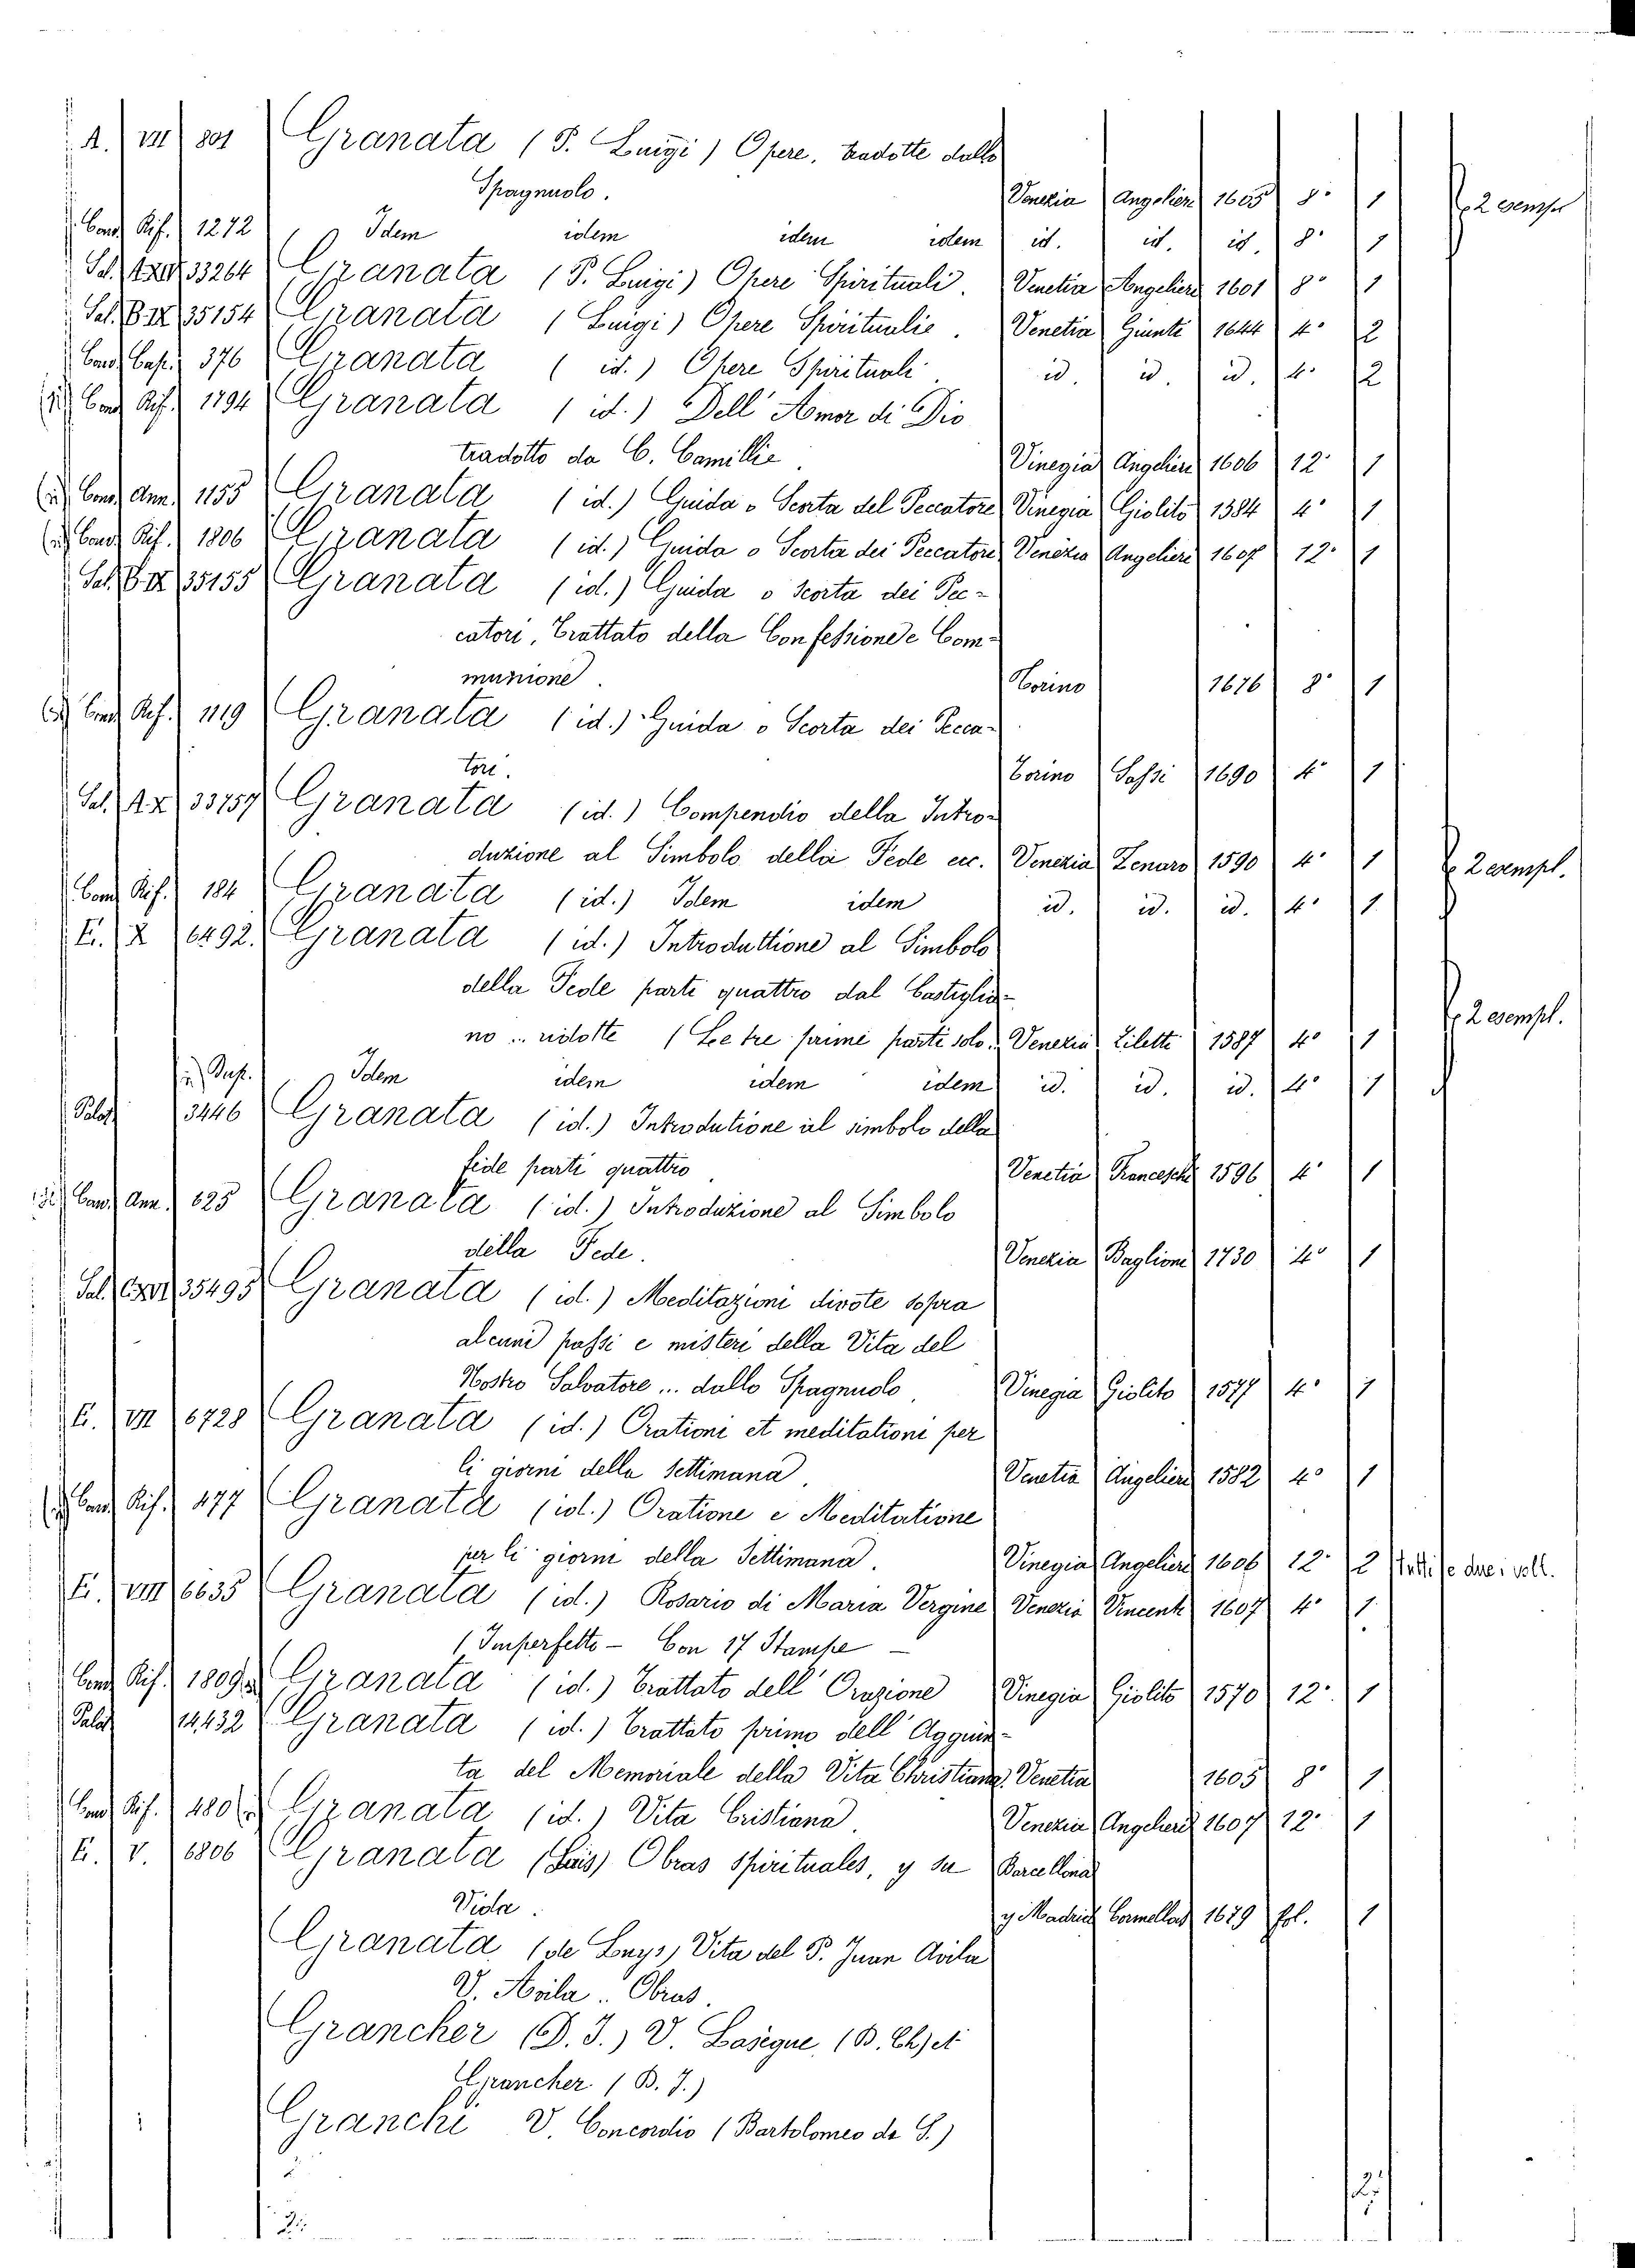 A. VII 801 Granata (P. Luigi) Opere, tradotte dallo
Spagnuolo. Venezia Angelieri 1605 8° 1 2 esempl
Cand. Rif. 1272 Idem idem idem idem id. id. id. 8° 1
Sal. 33264 Granata (P. Luigi) Opere Spirituali. Venetia Angelieri 1601 8° 1
Sal. B.IX 35154 Granata (Luigi) Opere Spiritualie. Venetia Giunte 1644 4° 2
Cand. 376 Granata (id.) Opere Spirituali id. id. id. 4° 2
Cand. Rif. 1794 Granata (id.) Dell' Amor di Dio
tradotto da C. Camillie. Vinegia Angelieri 1606 12° 1
Cand. Ann. 1155 Granata (id.) Guida o Scorta del Peccatore Vinegia Giolito 1584 4° 1
Cand. Rif. 1806 Granata (id.) Guida o Scorta dei Peccatori Venezia Angelieri 1607 12° 1
Sal. B.IX 35155 Granata (id.) Guida o scorta dei Pec-
catori, Trattato della Confessione e Com-
munione. Torino 1676 8° 1
Cand. Rif. 1119 Granata (id.) Guida o Scorta dei Pecca-
tori. Torino Sassi 1690 4° 1
Sal. A.X 33757 Granata (id.) Compendio della Intro-
duzione al Simbolo della Fede ecc. Venezia Zenaro 1590 4° 1 2 esempl.
Cand. Rif. 184 Granata (id.) Idem idem id. id. id. 4° 1
E. X 6492. Granata (id.) Introduttione al Simbolo
della Fede parti quattro dal Castiglia-
no .. ridotte (Le tre prime parti solo. Venezia Ziletti 1587 4° 1 2 esempl.
Idem idem idem idem id. id. id. 4° 1
Palat 3446 Granata (id.) Introdutione al simbolo della
fede parti quattro Venetia Franceschi 1596 4° 1
Cand. Ann. 625 Granata (id.) Introduzione al Simbolo
della Fede. Venezia Baglioni 1730 4° 1
Sal. 35495 Granata (id.) Meditazioni divote sopra
alcuni passi e misteri della Vita del
Nostro Salvatore ... dallo Spagnuolo Vinegia Giolito 1577 4° 1
E. VII 6728 Granata (id.) Orationi et meditationi per
li giorni della settimana Venetia Angelieri 1582 4° 1
Cand. Rif. 477 Granata (id.) Oratione e Meditatione
per li giorni della Settimana. Vinegia Angelieri 1606 12° 2 due i voll.
E. VIII 6635 Granata (id.) Rosario di Maria Vergine Venezia Vincenti 1607 4° 1
(Imperfetto - Con 17 Stampe -
Cand. Rif. 1809 Granata (id.) Trattato dell' Orazione Vinegia Giolito 1570 12° 1
Palat 14,432 Granata (id.) Trattato primo dell' Aggiun-
ta del Memoriale della Vita Christiana. Venetia 1605 8° 1
Cand. Rif. 480 Granata (id.) Vita Cristiana. Venezia Angelieri 1607 12° 1
E. V. 6806 Granata (Luis) Obras spirituales, y su Barcellona
Vida. y Madrid Cormellas 1679 fol. 1
Granata (de Luys) Vita del P. Juan Avila
V. Avila .. Obras.
Grancher (D. J.) V. Lasegue (B. Ch) et
Grancher (B. J.)
Granchi V. Concordio (Bartolomeo da S.)
2